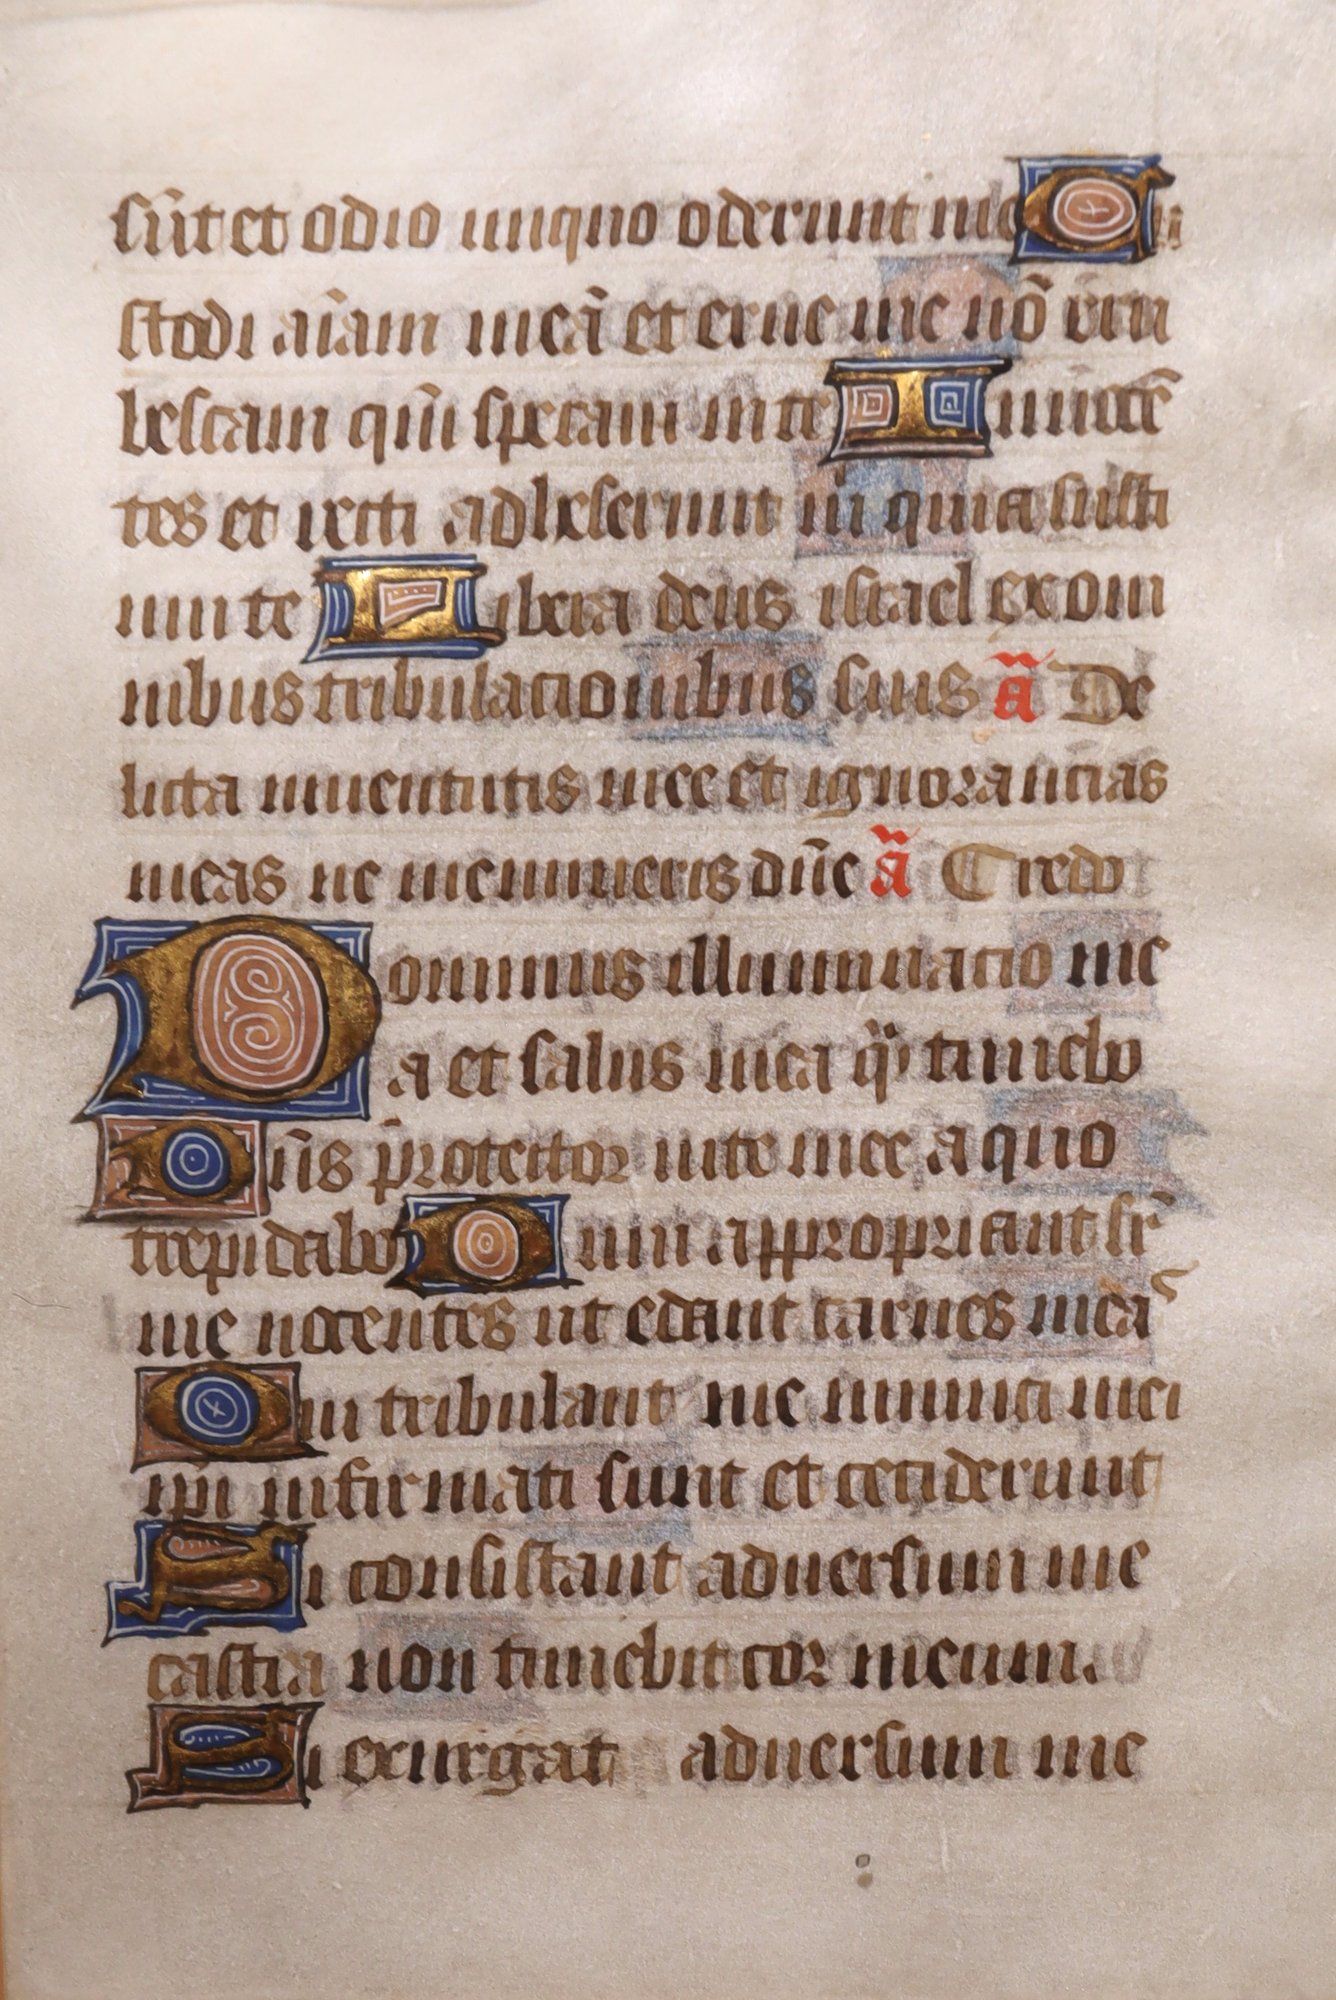 sūt et odio iniquo oderunt me Cu
stodi aīam meā et erue me nō eru
bescam qm̄ speraui in te Innocē
tes et recti adheserunt m̄ quia susti
nui te Libera deus israel ex om
nibus tribulacionibus suis ā De
licta iuuentutis mee et ignorancias
meas ne memineris dn̄e ā Credo
Dominus illuminacio me
a et salus mea quē timebo
Dn̄s protector uite mee a quo
trepidabo Dum appropriant sr̄
me nocentes ut edant carnes meas
Qui tribulant me inimici mei
ipi infirmati sunt et ceciderunt
Si consistant aduersum me
castra non timebit cor meum.
Si exurgat aduersum me